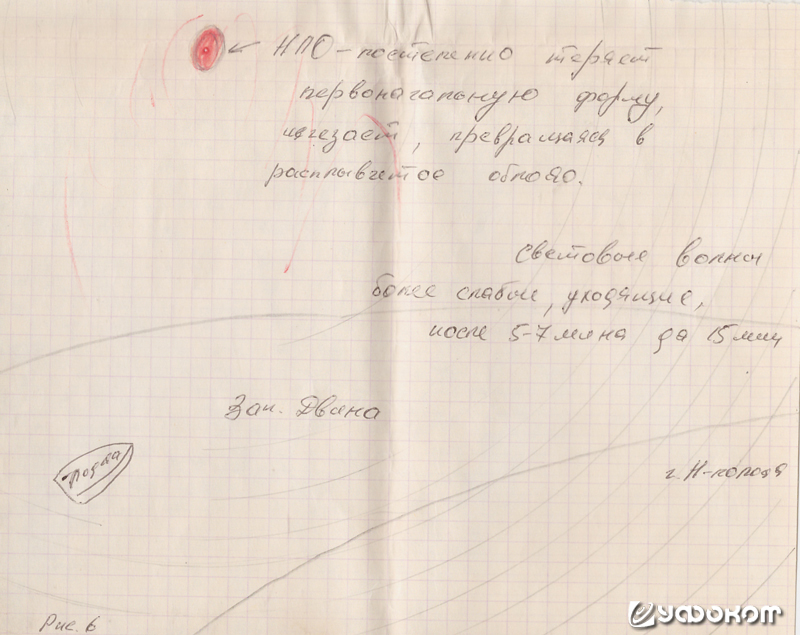 НЛО – постепенно теряет
первоначальную форму,
исчезает, превращаясь в
расплывчатое облако.
световые волны
более слабые, уходящие,
после 5-7 мин на до 15 мин
Зап. Двина
лодка
г. Н-полоцк
Рис. 6
УФОКОМ